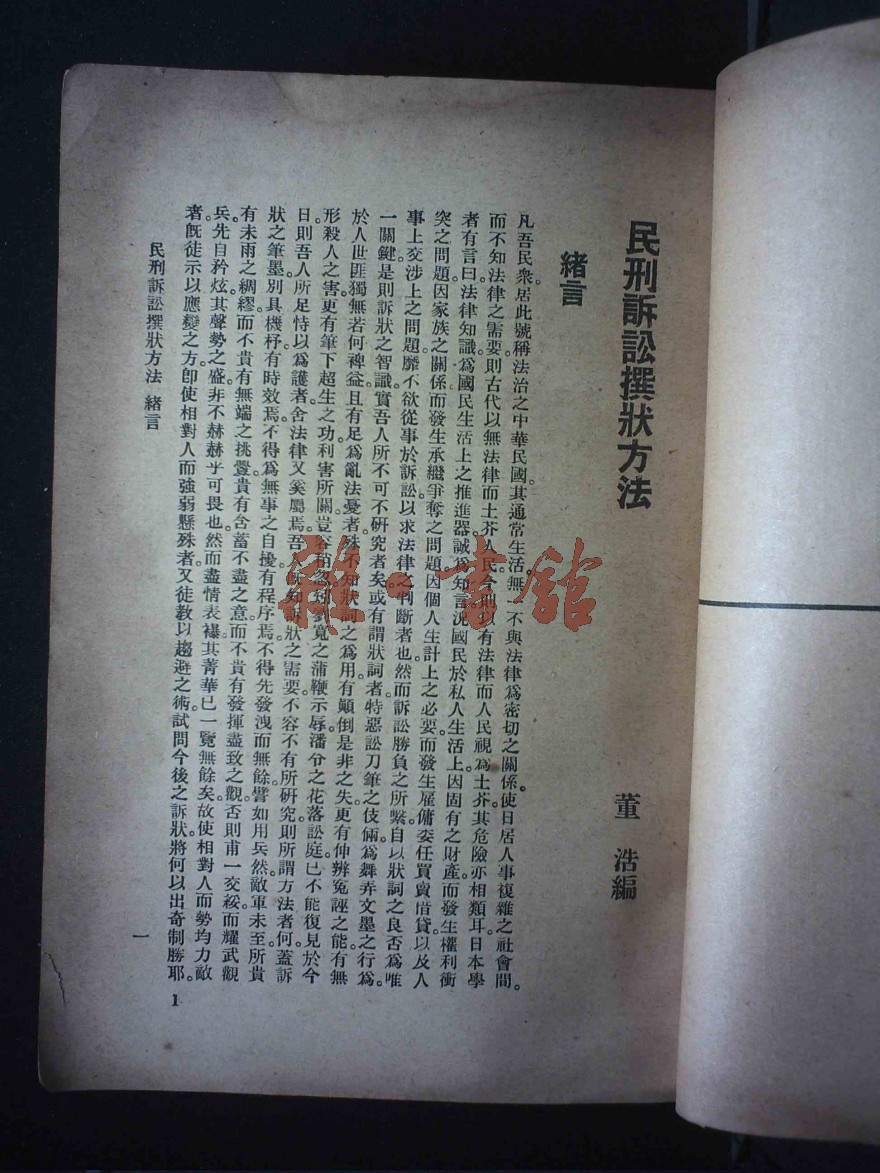 民刑訴訟撰狀方法
董 浩編
緒言
凡吾民衆。居此號稱法治之中華民國。其通常生活。無一不與法律爲密切之關係。使日居人事複雜之社會間。
而不知法律之需要。則古代以無法律而土芥人民。今則以有法律而人民視爲土芥。其危險亦相類耳。日本學
者有言曰。法律知識。爲國民生活上之推進器。誠爲知言。況國民於私人生活上。因固有之財產。而發生權利衝
突之問題。因家族之關係。而發生承繼爭奪之問題。因個人生計上之必要。而發生雇傭委任買賣借貸。以及人
事上交涉上之問題。靡不欲從事於訴訟。以求法律之判斷者也。然而訴訟勝負之所繫。自以狀詞之良否爲唯
一關鍵。是則訴狀之智識。實吾人所不可不研究者矣。或有謂狀詞者。特惡訟刀筆之伎倆。爲舞弄文墨之行爲。
於人世匪獨無若何裨益。且有足爲亂法憂者。殊不知狀詞之爲用。有顚倒是非之失。更有伸辨冤誣之能。有無
形殺人之害。更有筆下超生之功。利害所關。豈容稍忽。矧劉寬之蒲鞭示辱。潘令之花落訟庭。已不能復見於今
日。則吾人所足恃以爲護者。舍法律又奚屬焉。吾人旣知訴狀之需要。不容不有所研究。則所謂方法者何。蓋訴
狀之筆墨。別具機杼。有時效焉。不得爲無事之自擾。有程序焉。不得先發洩而無餘。譬如用兵然。敵軍未至。所貴
有未雨之綢繆。而不貴有無端之挑釁。貴有含蓄不盡之意。而不貴有發揮盡致之觀。否則甫一交綏。而耀武觀
兵。先自矜炫。其聲勢之盛。非不赫赫乎可畏也。然而盡情表襮。其菁華已一覽無餘矣。故使相對人而勢均力敵
者。旣徒示以應變之方。卽使相對人而強弱懸殊者。又徒教以趨避之術。試問今後之訴狀。將何以出奇制勝耶。
民刑訴訟撰狀方法 緒言
一
1
雜·書館